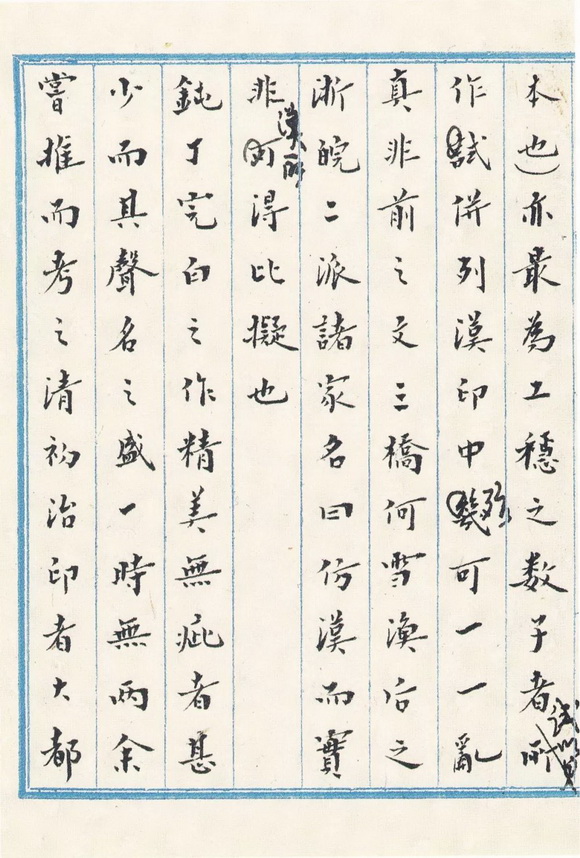 本也）亦最為工穩之数子者所試以其
作試併列漢印中幾殆可一一亂
真非前之文三橋何雪漁后之
浙皖二派諸家名曰仿漢而實
非漢所得比擬也
鈍丁完白之作精美無疵者甚
少而其聲名之盛一時無兩余
嘗推而考之清初治印者大都